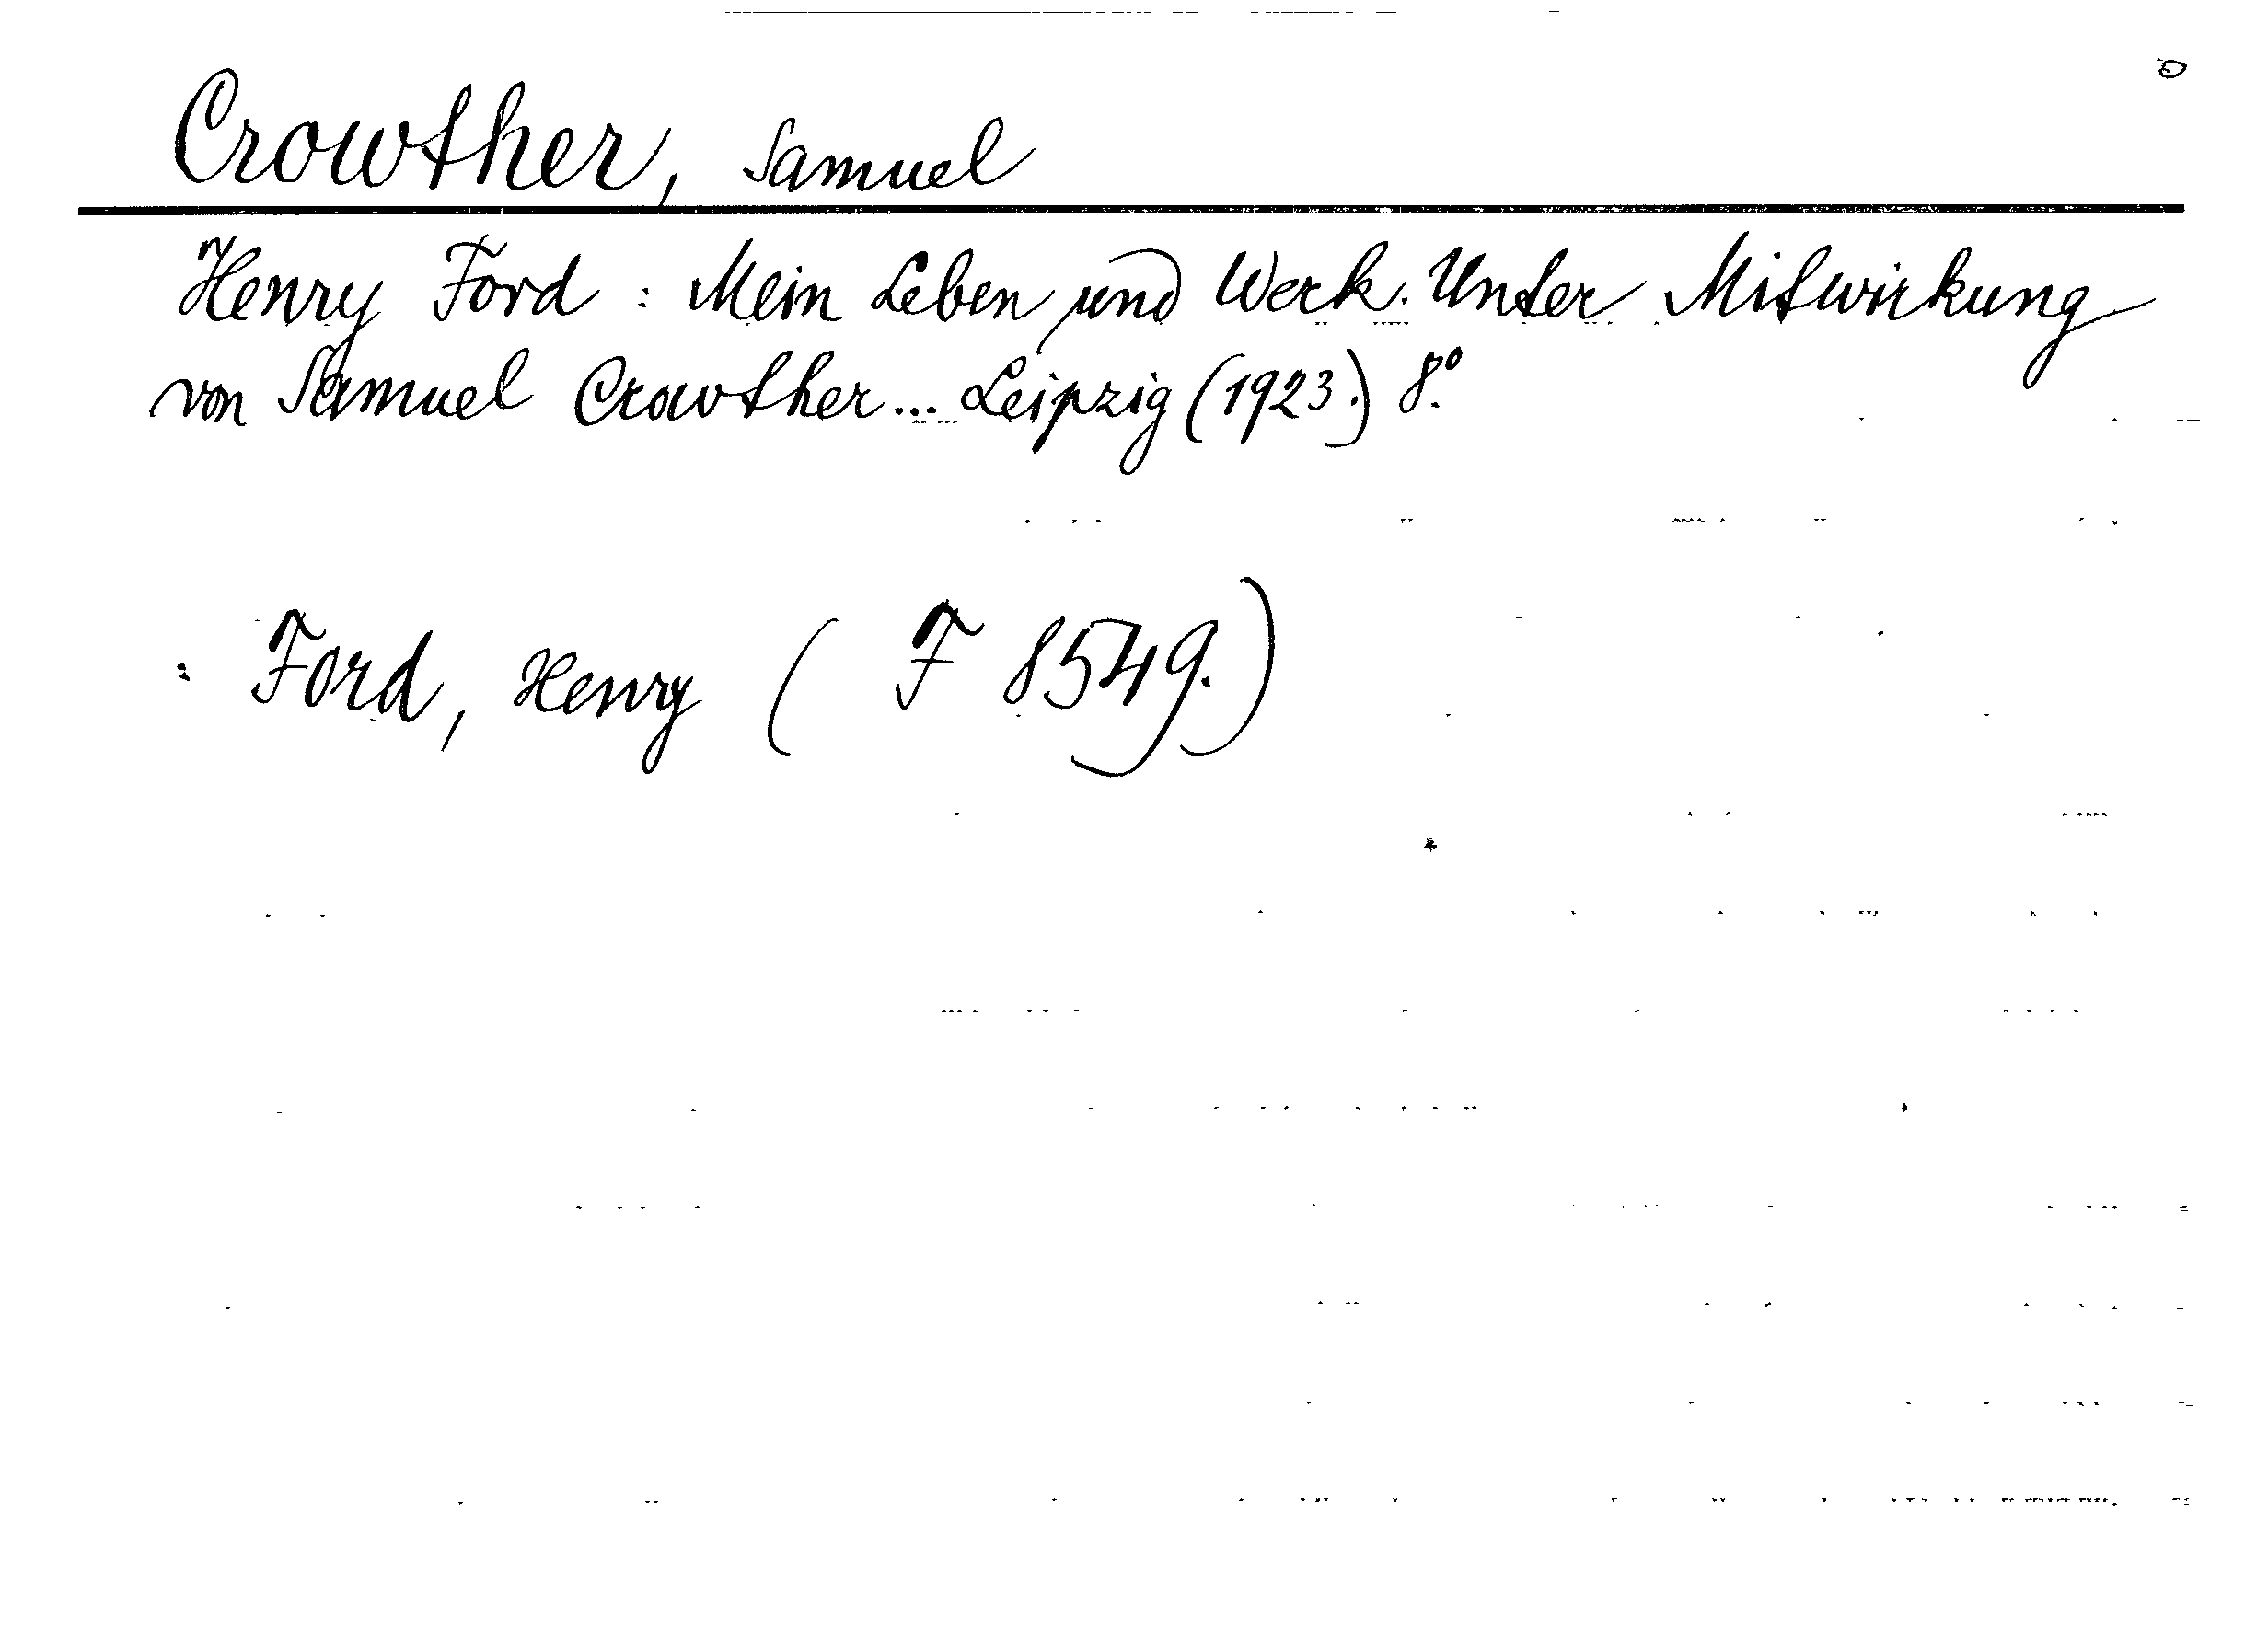 Crowther, Samuel
Henry Ford : Mein Leben und Werk. Unter Mitwirkung
von Samuel Crowther... Leipzig (1923.) 8°.
: Ford, Henry ( F 8549.)